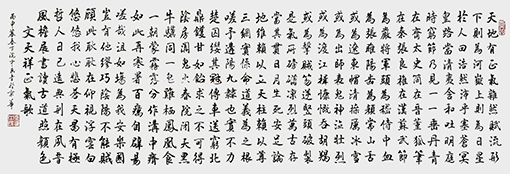 天地有正氣雜然賦流形
下則為河嶽上則為日星
於人曰浩然沛乎塞蒼冥
皇路當清夷含和吐明庭
時窮節乃見一一垂丹青
在齊太史簡在晉董狐筆
在秦張良椎在漢蘇武節
為嚴將軍頭為嵇侍中血
為張睢陽齒為顏常山舌
或為遼東帽清操厲冰雪
或為出師表鬼神泣壯烈
或為渡江楫慷慨吞胡羯
或為擊賊笏逆豎頭破裂
是氣所磅礴凜烈萬古存
當其貫日月生死安足論
地維賴以立天柱賴以尊
三綱實係命道義為之根
嗟予遘陽九隸也實不力
楚囚纓其冠傳車送窮北
鼎鑊甘如飴求之不可得
陰房闃鬼火春院閟天黑
牛驥同一皁雞棲鳳凰食
一朝蒙霧露分作溝中瘠
如此再寒暑百癘自辟易
嗟哉沮洳場為我安樂國
豈有他繆巧陰陽不能賊
顧此耿耿在仰視浮雲白
悠悠我心悲蒼天曷有極
哲人日已遠典刑在夙昔
風檐展書讀古道照顏色
文天祥正氣歌